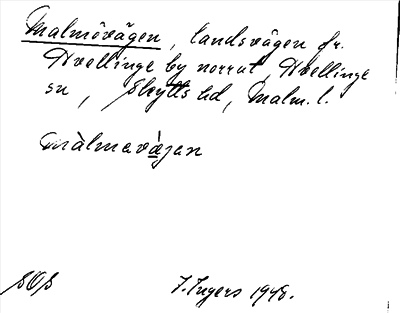 Malmövägen, landsvägen fr.
Hvellinge by norrut, Hvellinge
sn, Skytts hd, Malm. l.
màlmavàgan
SOS
I. Ingers 1948.